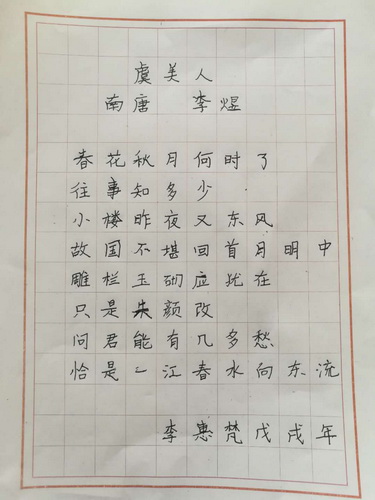 虞美人
南唐 李煜
春花秋月何时了
往事知多少
小楼昨夜又东风
故国不堪回首月明中
雕栏玉砌应犹在
只是朱颜改
问君能有几多愁
恰是一江春水向东流
李惠梵戊戌年